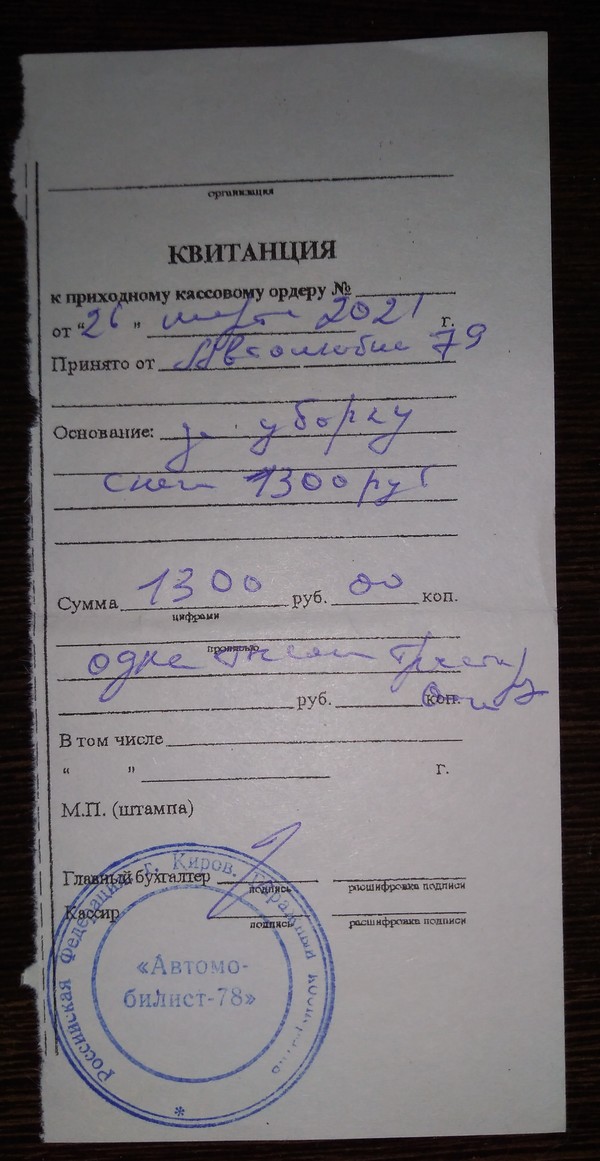 организация
КВИТАНЦИЯ
к приходному кассовому ордеру №
от “26” марта 2021 г.
Принято от 79
Основание: за уборку
снега 1300 руб
Сумма 1300 руб. 00 коп.
цифрами
прописью
одна тысяча триста руб
руб. коп.
В том числе
“ ” г.
М.П. (штампа)
Главный бухгалтер
подпись расшифровка подписи
Кассир
подпись расшифровка подписи
Российская Федерация г. Киров. гаражный кооператив
«Автомо-
билист-78»
*